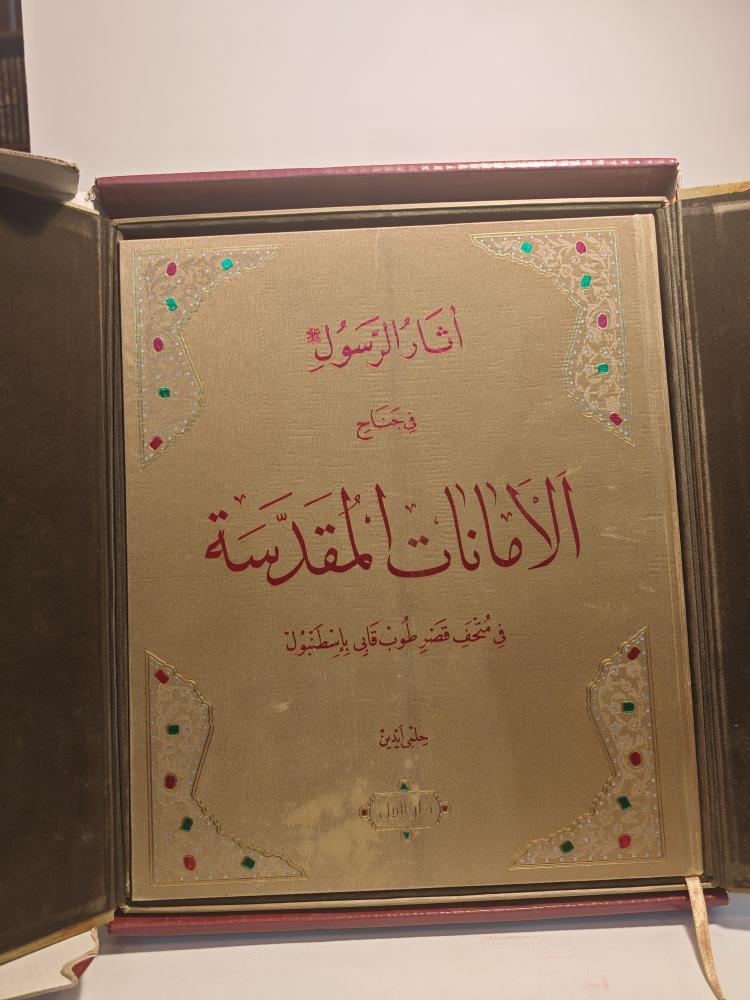 آثَارُ الرَّسُولِ ﷺ
فِي جَنَاحِ
الْأَمَانَات الْمُقَدَّسَة
فِي مُتْحَفِ قَصْرِ طُوبْ قَابِي بِإِسْطَنْبُولْ
حِلْمِي آيْدِينْ
دار النيل